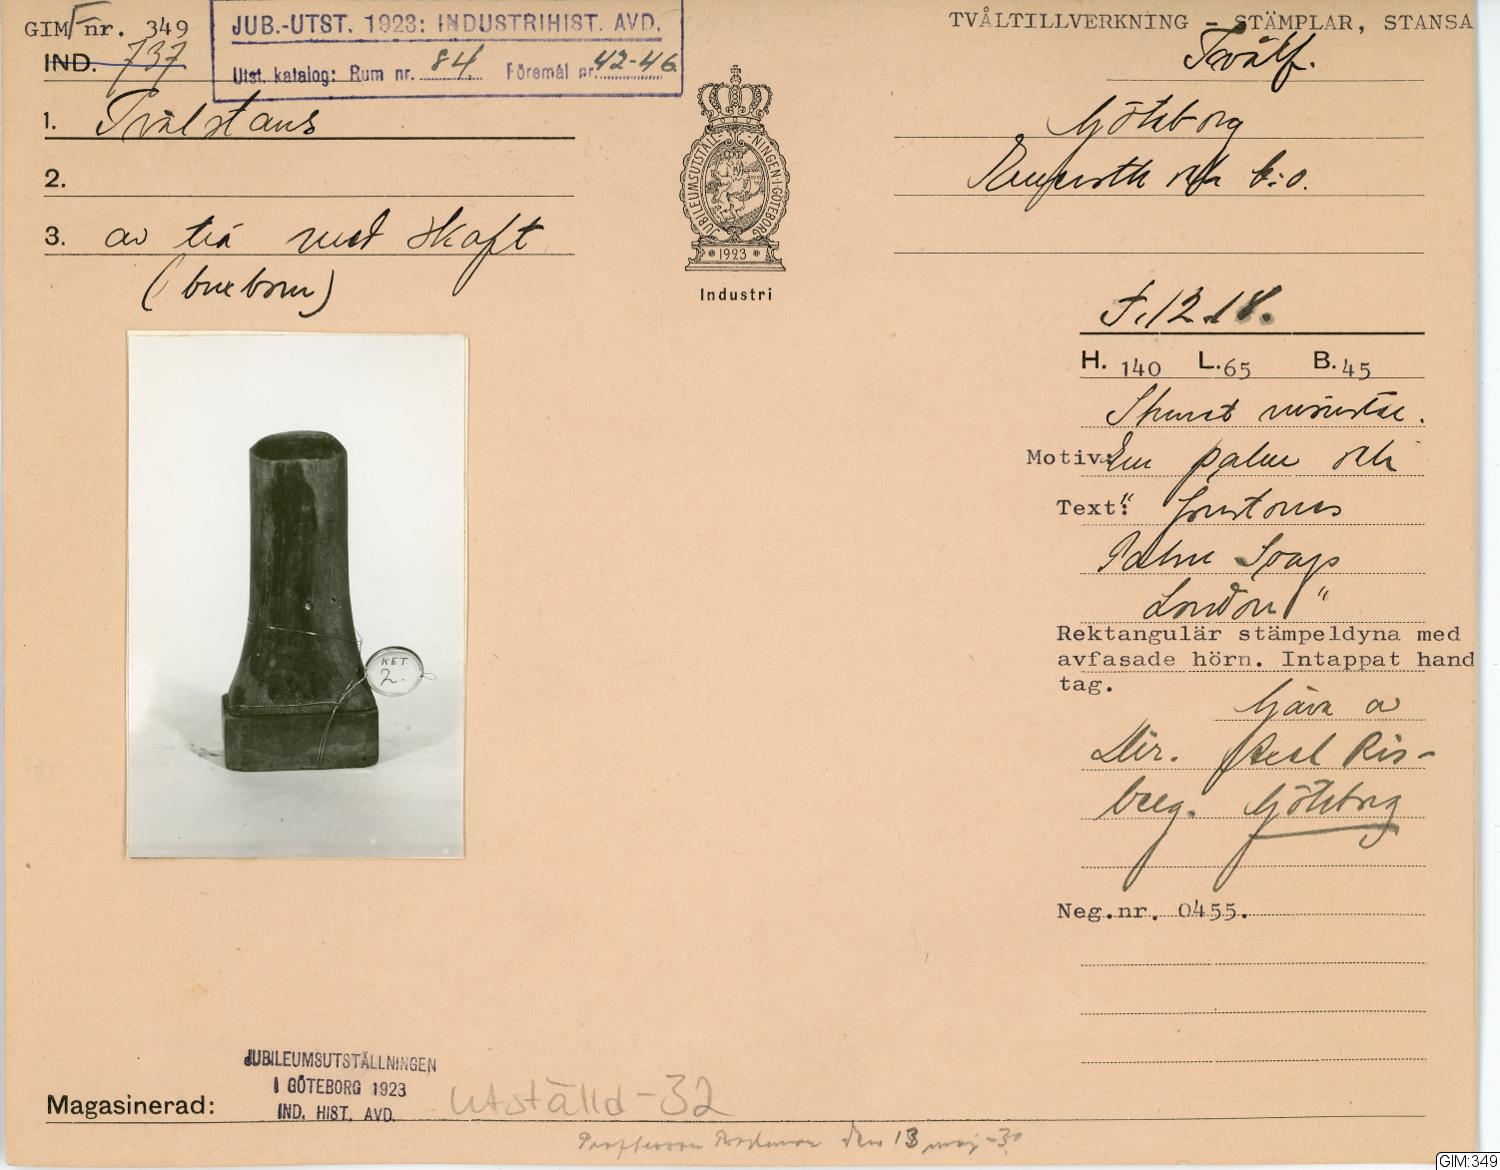 GIM nr. 349
IND. 737
JUB.-UTST. 1923: INDUSTRIHIST. AVD.
Utst. katalog: Rum nr. 84 Föremål nr. 42-46
TVÅLTILLVERKNING - STÄMPLAR, STANSA
Tvålf.
1. Tvålstans
2.
3. av trä med skaft
(buxbom)
JUBILEUMSUTSTÄLLNINGEN I GÖTEBORG
1923
Industri
Göteborg
och C:o.
F. 12.18.
H. 140 L. 65 B. 45
Skuret mönster.
Motiv: En palm och
Text: "
Palm Soap
London"
Rektangulär stämpeldyna med
avfasade hörn. Intappat hand
tag.
Gåva av
Dir. Axel Ris-
berg. Göteborg
Neg.nr. 0455.
KET.
2.
JUBILEUMSUTSTÄLLNINGEN
I GÖTEBORG 1923
IND. HIST. AVD.
Magasinerad: Utställd -32
den 13 maj -30
GIM:349